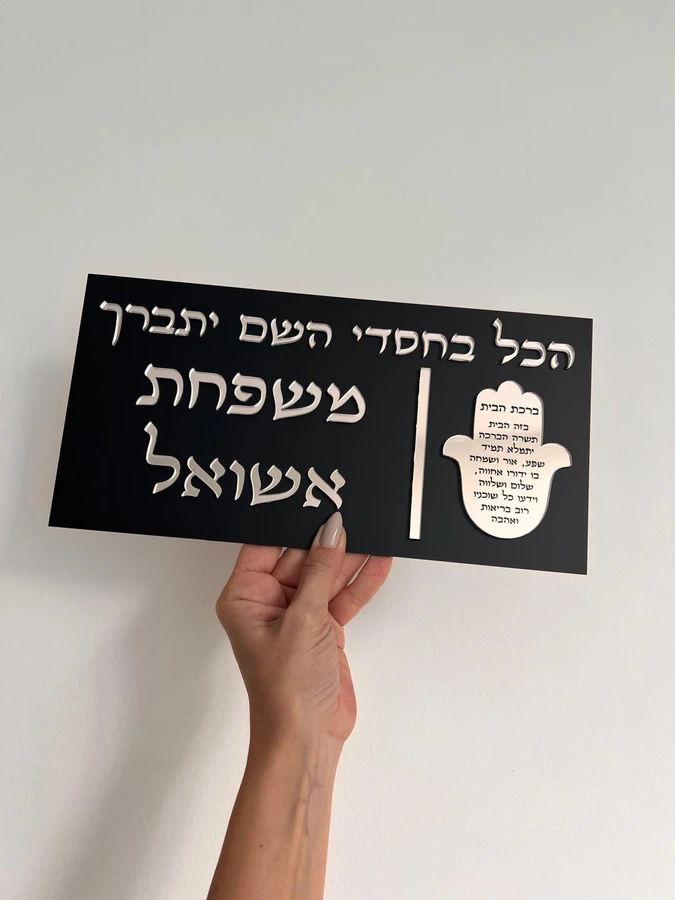 הכל בחסדי השם יתברך
משפחת
אשואל
ברכת הבית
בזה הבית
תשרה הברכה
יתמלא תמיד
שפע, אור ושמחה
בו ידורו אחווה,
שלום ושלווה
וידעו כל שוכניו
רוב בריאות
ואהבה